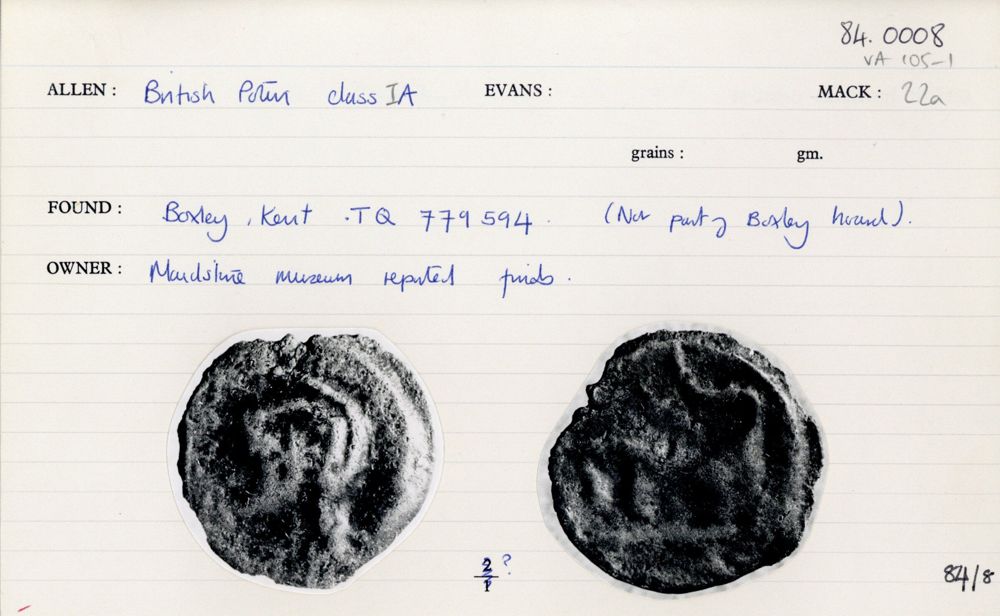 84.0008
VA 105-1
ALLEN : British Potin class IA EVANS : MACK : 22a
grains : gm.
FOUND : Boxley, Kent .TQ 779 594. (Not part of Boxley hoard).
OWNER : Maidstone museum reported finds.
2 ?
1
84/8